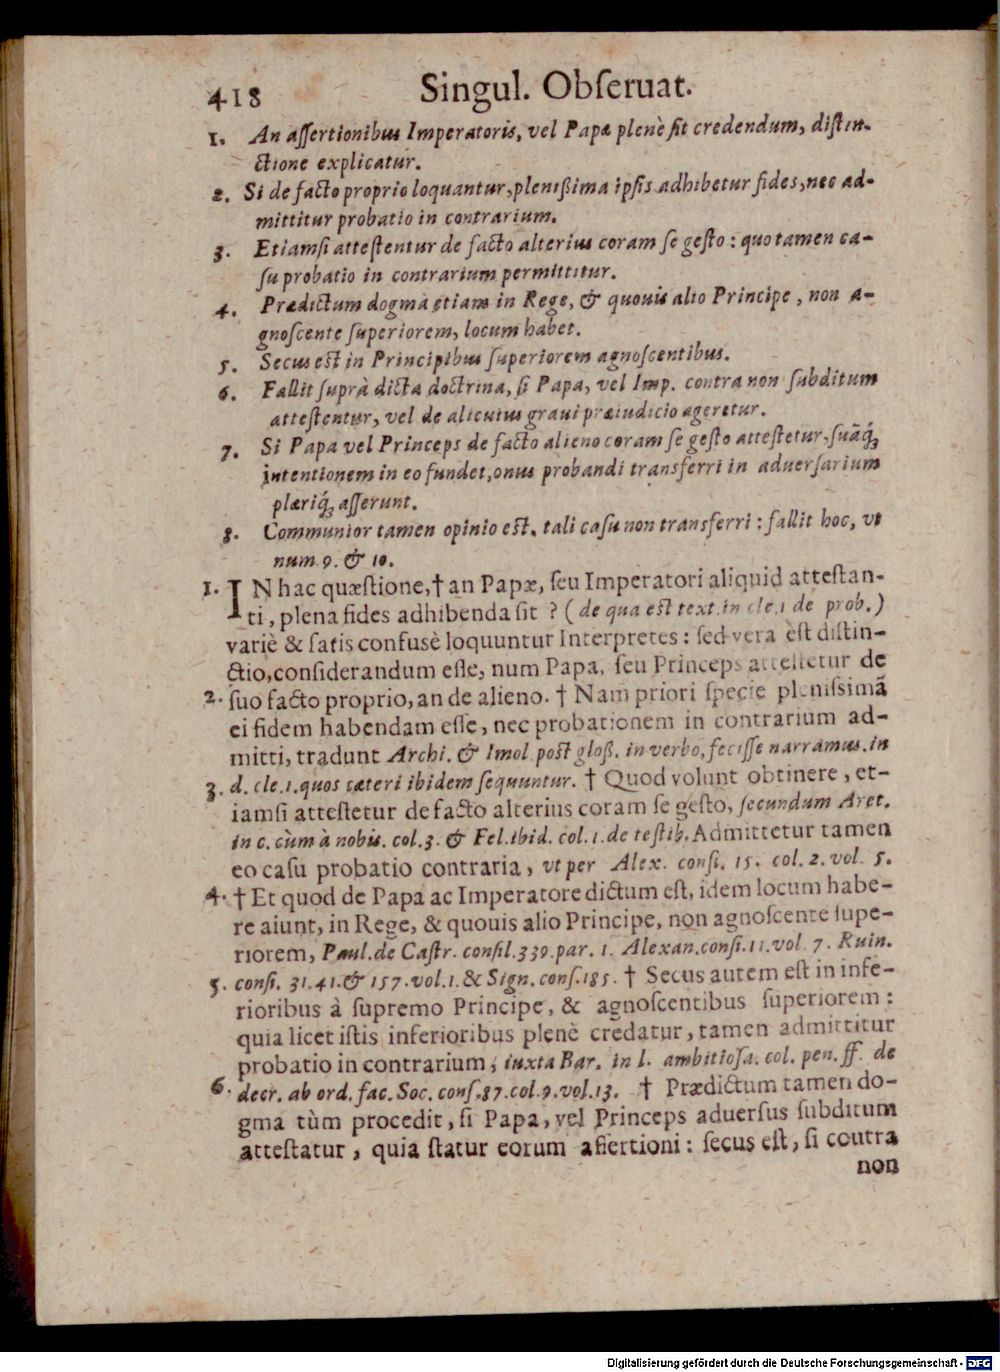 418 Singul. Obſeruat.
1. An aſſertionibus Imperatoris, vel Papæ plenè ſit credendum, diſtin-
ctione explicatur.
2. Si de facto proprio loquantur, pleniſſima ipſis adhibetur fides, nec ad-
mittitur probatio in contrarium.
3. Etiamſi atteſtentur de facto alterius coram ſe geſto: quo tamen ca-
ſu probatio in contrarium permittitur.
4. Prædictum dogma etiam in Rege, & quouis alio Principe, non a-
gnoſcente ſuperiorem, locum habet.
5. Secus eſt in Principibus ſuperiorem agnoſcentibus.
6. Fallit ſuprà dicta doctrina, ſi Papa, vel Imp. contra non ſubditum
atteſtentur, vel de alicuius graui præiudicio ageretur.
7. Si Papa vel Princeps de facto alieno coram ſe geſto atteſtetur, ſuāq́ꝫ
intentionem in eo fundet, onus probandi transferri in aduerſarium
pleriq́ꝫ aſſerunt.
8. Communior tamen opinio eſt, tali caſu non transferri: fallit hoc, vt
num. 9. & 10.
1. IN hac quæſtione, † an Papæ, ſeu Imperatori aliquid atteſtan-
ti, plena fides adhibenda ſit? (de qua eſt text. in cle. 1 de prob.)
variè & ſatis confusè loquuntur Interpretes: ſed vera eſt diſtin-
ctio, conſiderandum eſſe, num Papa, ſeu Princeps atteſtetur de
2. ſuo facto proprio, an de alieno. † Nam priori ſpecie pleniſſimā
ei fidem habendam eſſe, nec probationem in contrarium ad-
mitti, tradunt Archi. & Imol. poſt gloß. in verbo, feciſſe narramus. in
3. d. cle. 1. quos cæteri ibidem ſequuntur. † Quod volunt obtinere, et-
iamſi atteſtetur de facto alterius coram ſe geſto, ſecundum Aret.
in c. cùm à nobis. col. 3. & Fel. ibid. col. 1. de teſtib. Admittetur tamen
eo caſu probatio contraria, vt per Alex. conſi. 15. col. 2. vol. 5.
4. † Et quod de Papa ac Imperatore dictum eſt, idem locum habe-
re aiunt, in Rege, & quouis alio Principe, non agnoſcente ſupe-
riorem, Paul. de Caſtr. conſil. 339. par. 1. Alexan. conſi. 11. vol. 7. Ruin.
5. conſi. 31. 41. & 157. vol. 1. & Sign. conſ. 185. † Secus autem eſt in infe-
rioribus à ſupremo Principe, & agnoſcentibus ſuperiorem:
quia licet iſtis inferioribus plenè credatur, tamen admittitur
probatio in contrarium, iuxta Bar. in l. ambitioſa. col. pen. ff. de
6. decr. ab ord. fac. Soc. conſ. 87. col. 9. vol. 13. † Prædictum tamen do-
gma tùm procedit, ſi Papa, vel Princeps aduerſus ſubditum
atteſtatur, quia ſtatur eorum aſſertioni: ſecus eſt, ſi coutra
non
Digitalisierung gefördert durch die Deutsche Forschungsgemeinschaft - DFG